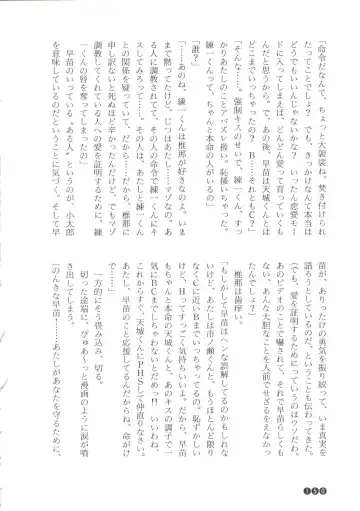 「命令だなんて、ちょっと大袈裟ね。焚き付けられ
たってことでしょ? でも、きっかけなんて本当は
どうでもいいんじゃないかな? いったん恋愛モー
ドに入ってしまえば、どんどん愛て育っていくも
んだと思うから。で、あの後、早苗は天城くんとは
どこまでいっちゃったの? B…それともC?」
「そんな……。強制キスのせいで、練一くん、すっ
かりあたしのことアバズレ扱い。恥掻いちゃった。
練一くんって、ちゃんと本命の人がいるの」
「誰?」
「……あのね、練一くんは椎那が好きなのよ。いま
まで黙ってたけど、じつはあたし……マゾなの。あ
る人に調教されてて、その人の命令で練一くんにキ
スしてみろって……。その人は、あたしと練一くん
との関係を疑っていて……だから……だから、椎那に
申し訳ないと死ぬほど辛かったんだけど、でもマゾ
調教してくれている人への愛を証明するために、練
一くんの唇を奪ってしまったの」
早苗の言っている“ある人”というのが、小太郎
を意味しているのだということに気づく。そして早
苗が、ありったけの勇気を振り絞って、いま真実を
語ろうとしているのだ、ということも伝わってきた。
(でも、愛を証明するためにっていうのはウソね。
あのレザのことで嚇されてて、それで早苗が仕方
ない、あんな大胆なことを人前でせざるをえなかっ
たんでしょ?)
椎那は歯痒い。
「もしかして早苗はヘンな誤解してるのかもしれな
いけど、あたしは市ノ瀬くんとして、もうほとんど限り
なくCに近いBまでいっちゃってるの。恥ずかしい
けど、Hってすっごく気持ちいいよ。だから、早苗
もちゃんと本命の天城くんと、あのキスの調子で一
気にBCまでしちゃわないとだめっ!! いいわね。
これからすぐ、天城くんにPHSして仲直りなさい。
あたし、早苗のこと応援してるんだからね、命がけ
で」
一方的にそう畳み込み、切る。
切った途端に、ぴゅあーっと漫画のように涙が噴
き出してしまう。
(のんきな早苗……あたしがあなたを守るために、
150